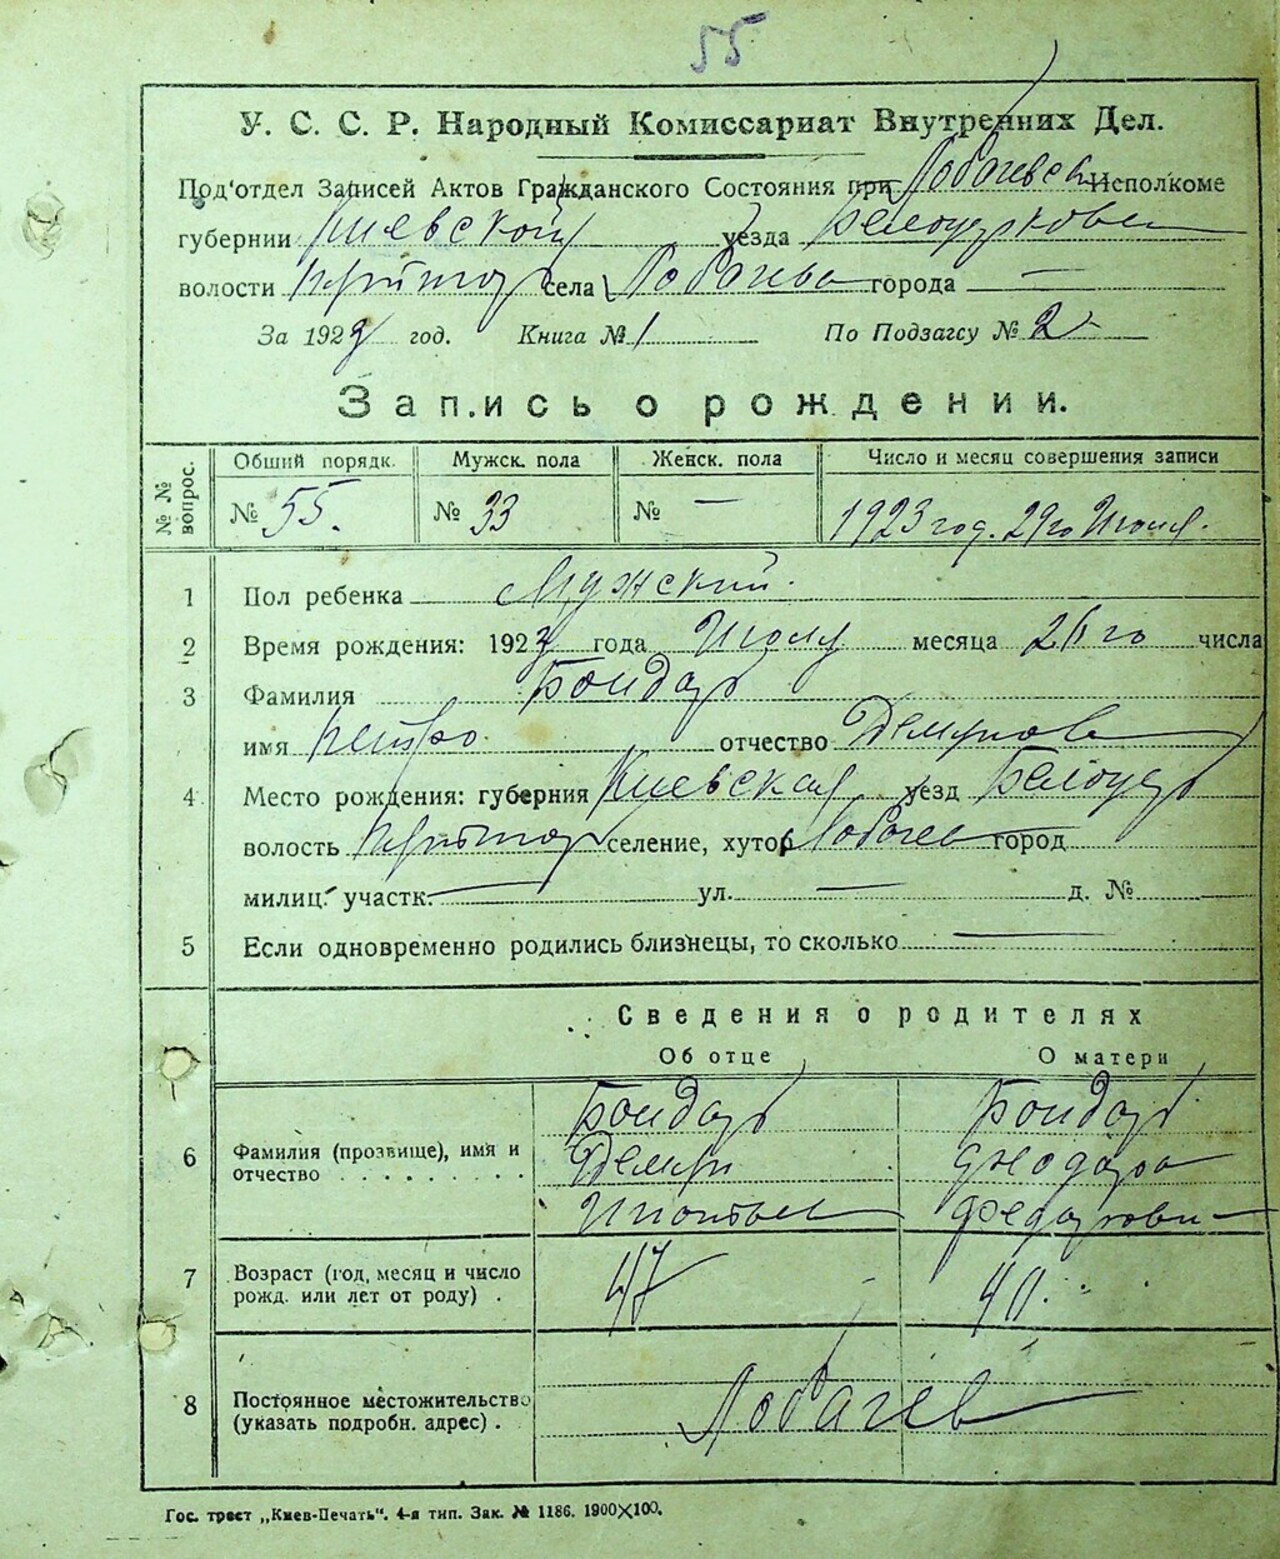 55
У. С. С. Р. Народный Комиссариат Внутренних Дел.
Под'отдел Записей Актов Гражданского Состояния при Лобачевск Исполкоме
губернии Киевской уезда Белоцерков
волости села Лобачева города —
За 1923 год. Книга № 1 По Подзагсу № 2
Запись о рождении.
№№ вопрос.
Общий порядк. Мужск. пола Женск. пола Число и месяц совершения записи
№ 55. № 33 № — 1923 год. 29го Июля.
1 Пол ребенка Мужский.
2 Время рождения: 1923 года Июля месяца числа
3 Фамилия Бондарь
имя Петро отчество Демидов
4 Место рождения: губерния Киевская уезд Белоцер
волость селение, хутор Лобачев город
милиц. участк. — ул. — д. №
5 Если одновременно родились близнецы, то сколько —
Сведения о родителях
Об отце О матери
Бондарь Бондарь
6 Фамилия (прозвище), имя и отчество
Федоровн
7 Возраст (год, месяц и число рожд. или лет от роду) . 47 40.
8 Постоянное местожительство (указать подробн. адрес) . Лобачев
Гос. трест „Киев-Печать“. 4-я тип. Зак. № 1186. 1900×100.